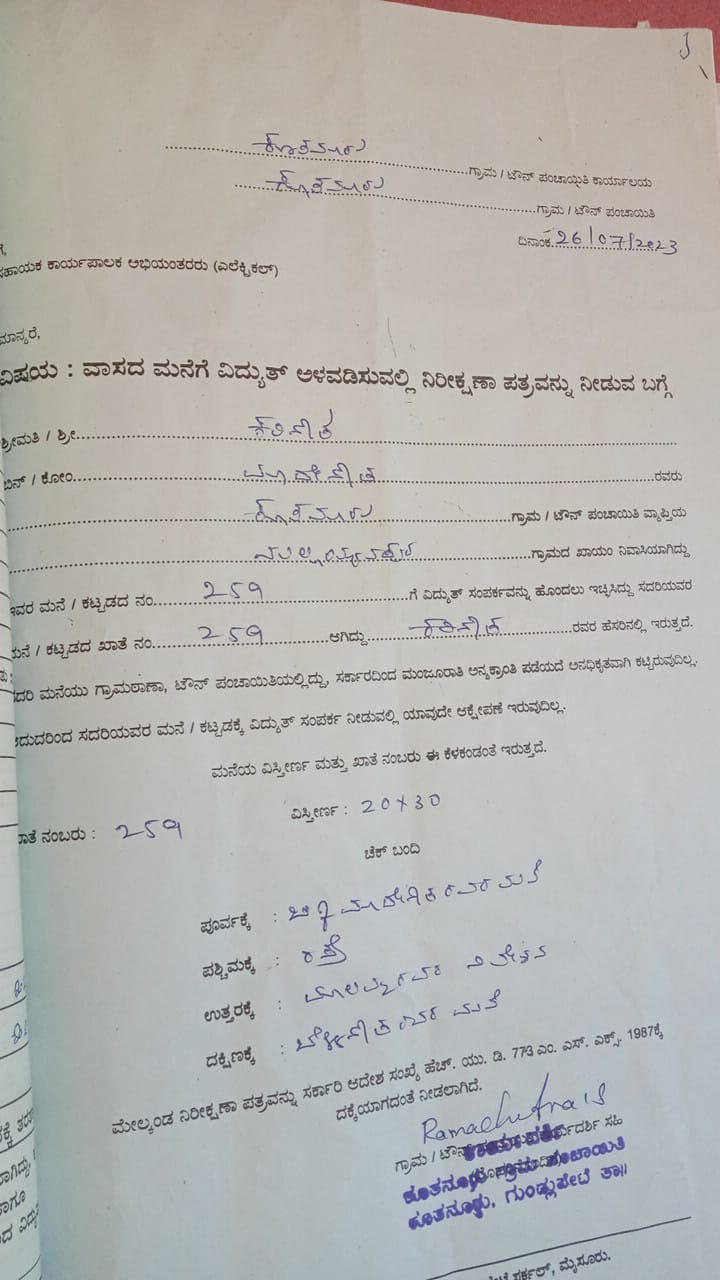 ಕೂತನೂರು ಗ್ರಾಮ / ಟೌನ್ ಪಂಚಾಯಿತಿ ಕಾರ್ಯಾಲಯ
ಕೂತನೂರು ಗ್ರಾಮ / ಟೌನ್ ಪಂಚಾಯಿತಿ
ದಿನಾಂಕ 26/07/2023
ಸಹಾಯಕ ಕಾರ್ಯಪಾಲಕ ಅಭಿಯಂತರರು (ಎಲೆಕ್ಟ್ರಿಕಲ್)
ಮಾನ್ಯರೆ,
ವಿಷಯ : ವಾಸದ ಮನೆಗೆ ವಿದ್ಯುತ್ ಅಳವಡಿಸುವಲ್ಲಿ ನಿರೀಕ್ಷಣಾ ಪತ್ರವನ್ನು ನೀಡುವ ಬಗ್ಗೆ
ಶ್ರೀಮತಿ / ಶ್ರೀ
ಬಿನ್ / ಕೋಂ ರವರು
ಕೂತನೂರು ಗ್ರಾಮ / ಟೌನ್ ಪಂಚಾಯಿತಿ ವ್ಯಾಪ್ತಿಯ
ಗ್ರಾಮದ ಖಾಯಂ ನಿವಾಸಿಯಾಗಿದ್ದು
ಇವರ ಮನೆ / ಕಟ್ಟಡದ ನಂ. 259 ಗೆ ವಿದ್ಯುತ್ ಸಂಪರ್ಕವನ್ನು ಹೊಂದಲು ಇಚ್ಛಿಸಿದ್ದು ಸದರಿಯವರ
ಮನೆ / ಕಟ್ಟಡದ ಖಾತೆ ನಂ. 259 ಆಗಿದ್ದು ರವರ ಹೆಸರಿನಲ್ಲಿ ಇರುತ್ತದೆ.
ಸದರಿ ಮನೆಯು ಗ್ರಾಮಠಾಣಾ, ಟೌನ್ ಪಂಚಾಯಿತಿಯಲ್ಲಿದ್ದು, ಸರ್ಕಾರದಿಂದ ಮಂಜೂರಾತಿ ಅನ್ಯಕ್ರಾಂತಿ ಪಡೆಯದೆ ಅನಧಿಕೃತವಾಗಿ ಕಟ್ಟಿರುವುದಿಲ್ಲ.
ಆದುದರಿಂದ ಸದರಿಯವರ ಮನೆ / ಕಟ್ಟಡಕ್ಕೆ ವಿದ್ಯುತ್ ಸಂಪರ್ಕ ನೀಡುವಲ್ಲಿ ಯಾವುದೇ ಆಕ್ಷೇಪಣೆ ಇರುವುದಿಲ್ಲ.
ಮನೆಯ ವಿಸ್ತೀರ್ಣ ಮತ್ತು ಖಾತೆ ನಂಬರು ಈ ಕೆಳಕಂಡಂತೆ ಇರುತ್ತದೆ.
ಖಾತೆ ನಂಬರು : 259 ವಿಸ್ತೀರ್ಣ : 20 x 30
ಚೆಕ್ ಬಂದಿ
ಪೂರ್ವಕ್ಕೆ : ಮನೆ
ಪಶ್ಚಿಮಕ್ಕೆ : ರಸ್ತೆ
ಉತ್ತರಕ್ಕೆ : ನಿವೇಶನ
ದಕ್ಷಿಣಕ್ಕೆ : ಮನೆ
ಮೇಲ್ಕಂಡ ನಿರೀಕ್ಷಣಾ ಪತ್ರವನ್ನು ಸರ್ಕಾರಿ ಆದೇಶ ಸಂಖ್ಯೆ ಹೆಚ್. ಯು. ಡಿ. 773 ಎಂ. ಎಸ್. ಎಕ್ಸ್. 1987ಕ್ಕೆ
ದಕ್ಕೆಯಾಗದಂತೆ ನೀಡಲಾಗಿದೆ.
ಗ್ರಾಮ / ಟೌನ್ ಸಹಿ
ಕೂತನೂರು ಗ್ರಾಮ ಪಂಚಾಯಿತಿ
ಕೂತನೂರು, ಗುಂಡ್ಲುಪೇಟೆ ತಾ॥
ಸರ್ಕಲ್, ಮೈಸೂರು.